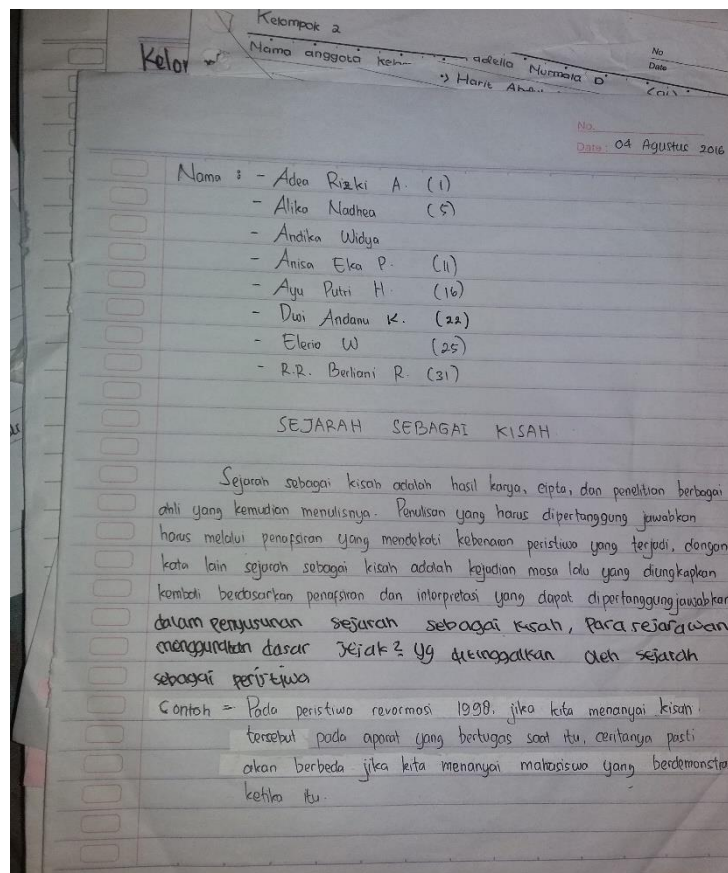 Kelompok 2
Nama anggota
adelia Nurmala D
Harit
No
Date
Kelo
No.
Date: 04 Agustus 2016
Nama : - Adea Rizki A. (1)
- Alika Nadhea (5)
- Andika Widya
- Anisa Eka P. (11)
- Ayu Putri H. (16)
- Dwi Andanu K. (22)
- Elerio W (25)
- R.R. Berliani R. (31)
SEJARAH SEBAGAI KISAH
Sejarah sebagai kisah adalah hasil karya, cipta, dan penelitian berbagai
ahli yang kemudian menulisnya. Penulisan yang harus dipertanggung jawabkan
harus melalui penafsiran yang mendekati kebenaran peristiwa yang terjadi, dengan
kata lain sejarah sebagai kisah adalah kejadian masa lalu yang diungkapkan
kembali berdasarkan penafsiran dan interpretasi yang dapat dipertanggungjawabkan
dalam penyusunan sejarah sebagai kisah, para sejarawan
menggunakan dasar jejak2 yg ditinggalkan oleh sejarah
sebagai peristiwa
Contoh = Pada peristiwa revormasi 1998, jika kita menanyai kisah
tersebut pada aparat yang bertugas saat itu, ceritanya pasti
akan berbeda jika kita menanyai mahasiswa yang berdemonstra
ketika itu.